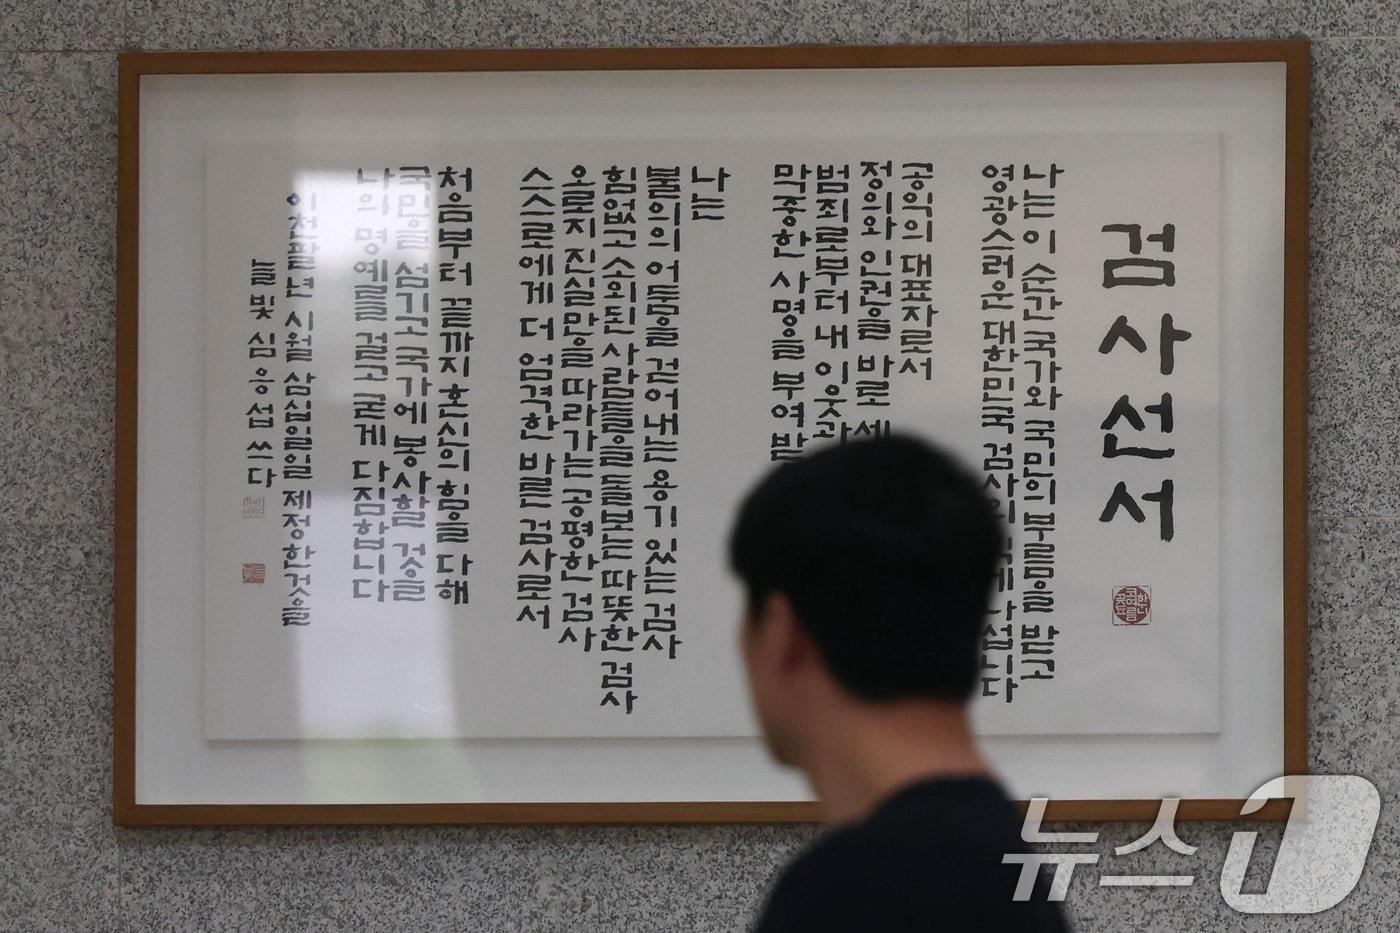 검사선서
나는 이 순간 국가와 국민의 부름을 받고
영광스러운 대한민국 검사의 나섭니다
공익의 대표자로서
정의와 인권을 바로 세
범죄로부터 내 이웃
막중한 사명을 부여
나는
불의의 어둠을 걷어내는 용기 있는 검사
힘없고 소외된 사람들을 돌보는 따뜻한 검사
오로지 진실만을 따라가는 공평한 검사
스스로에게 더 엄격한 바른 검사로서
처음부터 끝까지 혼신의 힘을 다해
국민을 섬기고 국가에 봉사할 것을
나의 명예를 걸고 굳게 다짐합니다
이천팔년 시월 삼십일일 제정한것을
늘빛 심응섭 쓰다
뉴스1